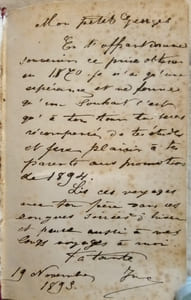 Mon petit Georges
En t'offrant comme
souvenir ce prix obtenu
en 1870 je n'ai qu'une
espérance et ne forme
qu'un souhait c'est
qu'à ton tour tu sois
récompensé de tes études
et fere plaisir à tes
parents aux promotions
de 1894.
Lis ces voyages
avec ton père dans ces
longues soirées d'hiver
et pense aussi à nos
longs voyages à moi
Ta tante
19 Novembre
1893.